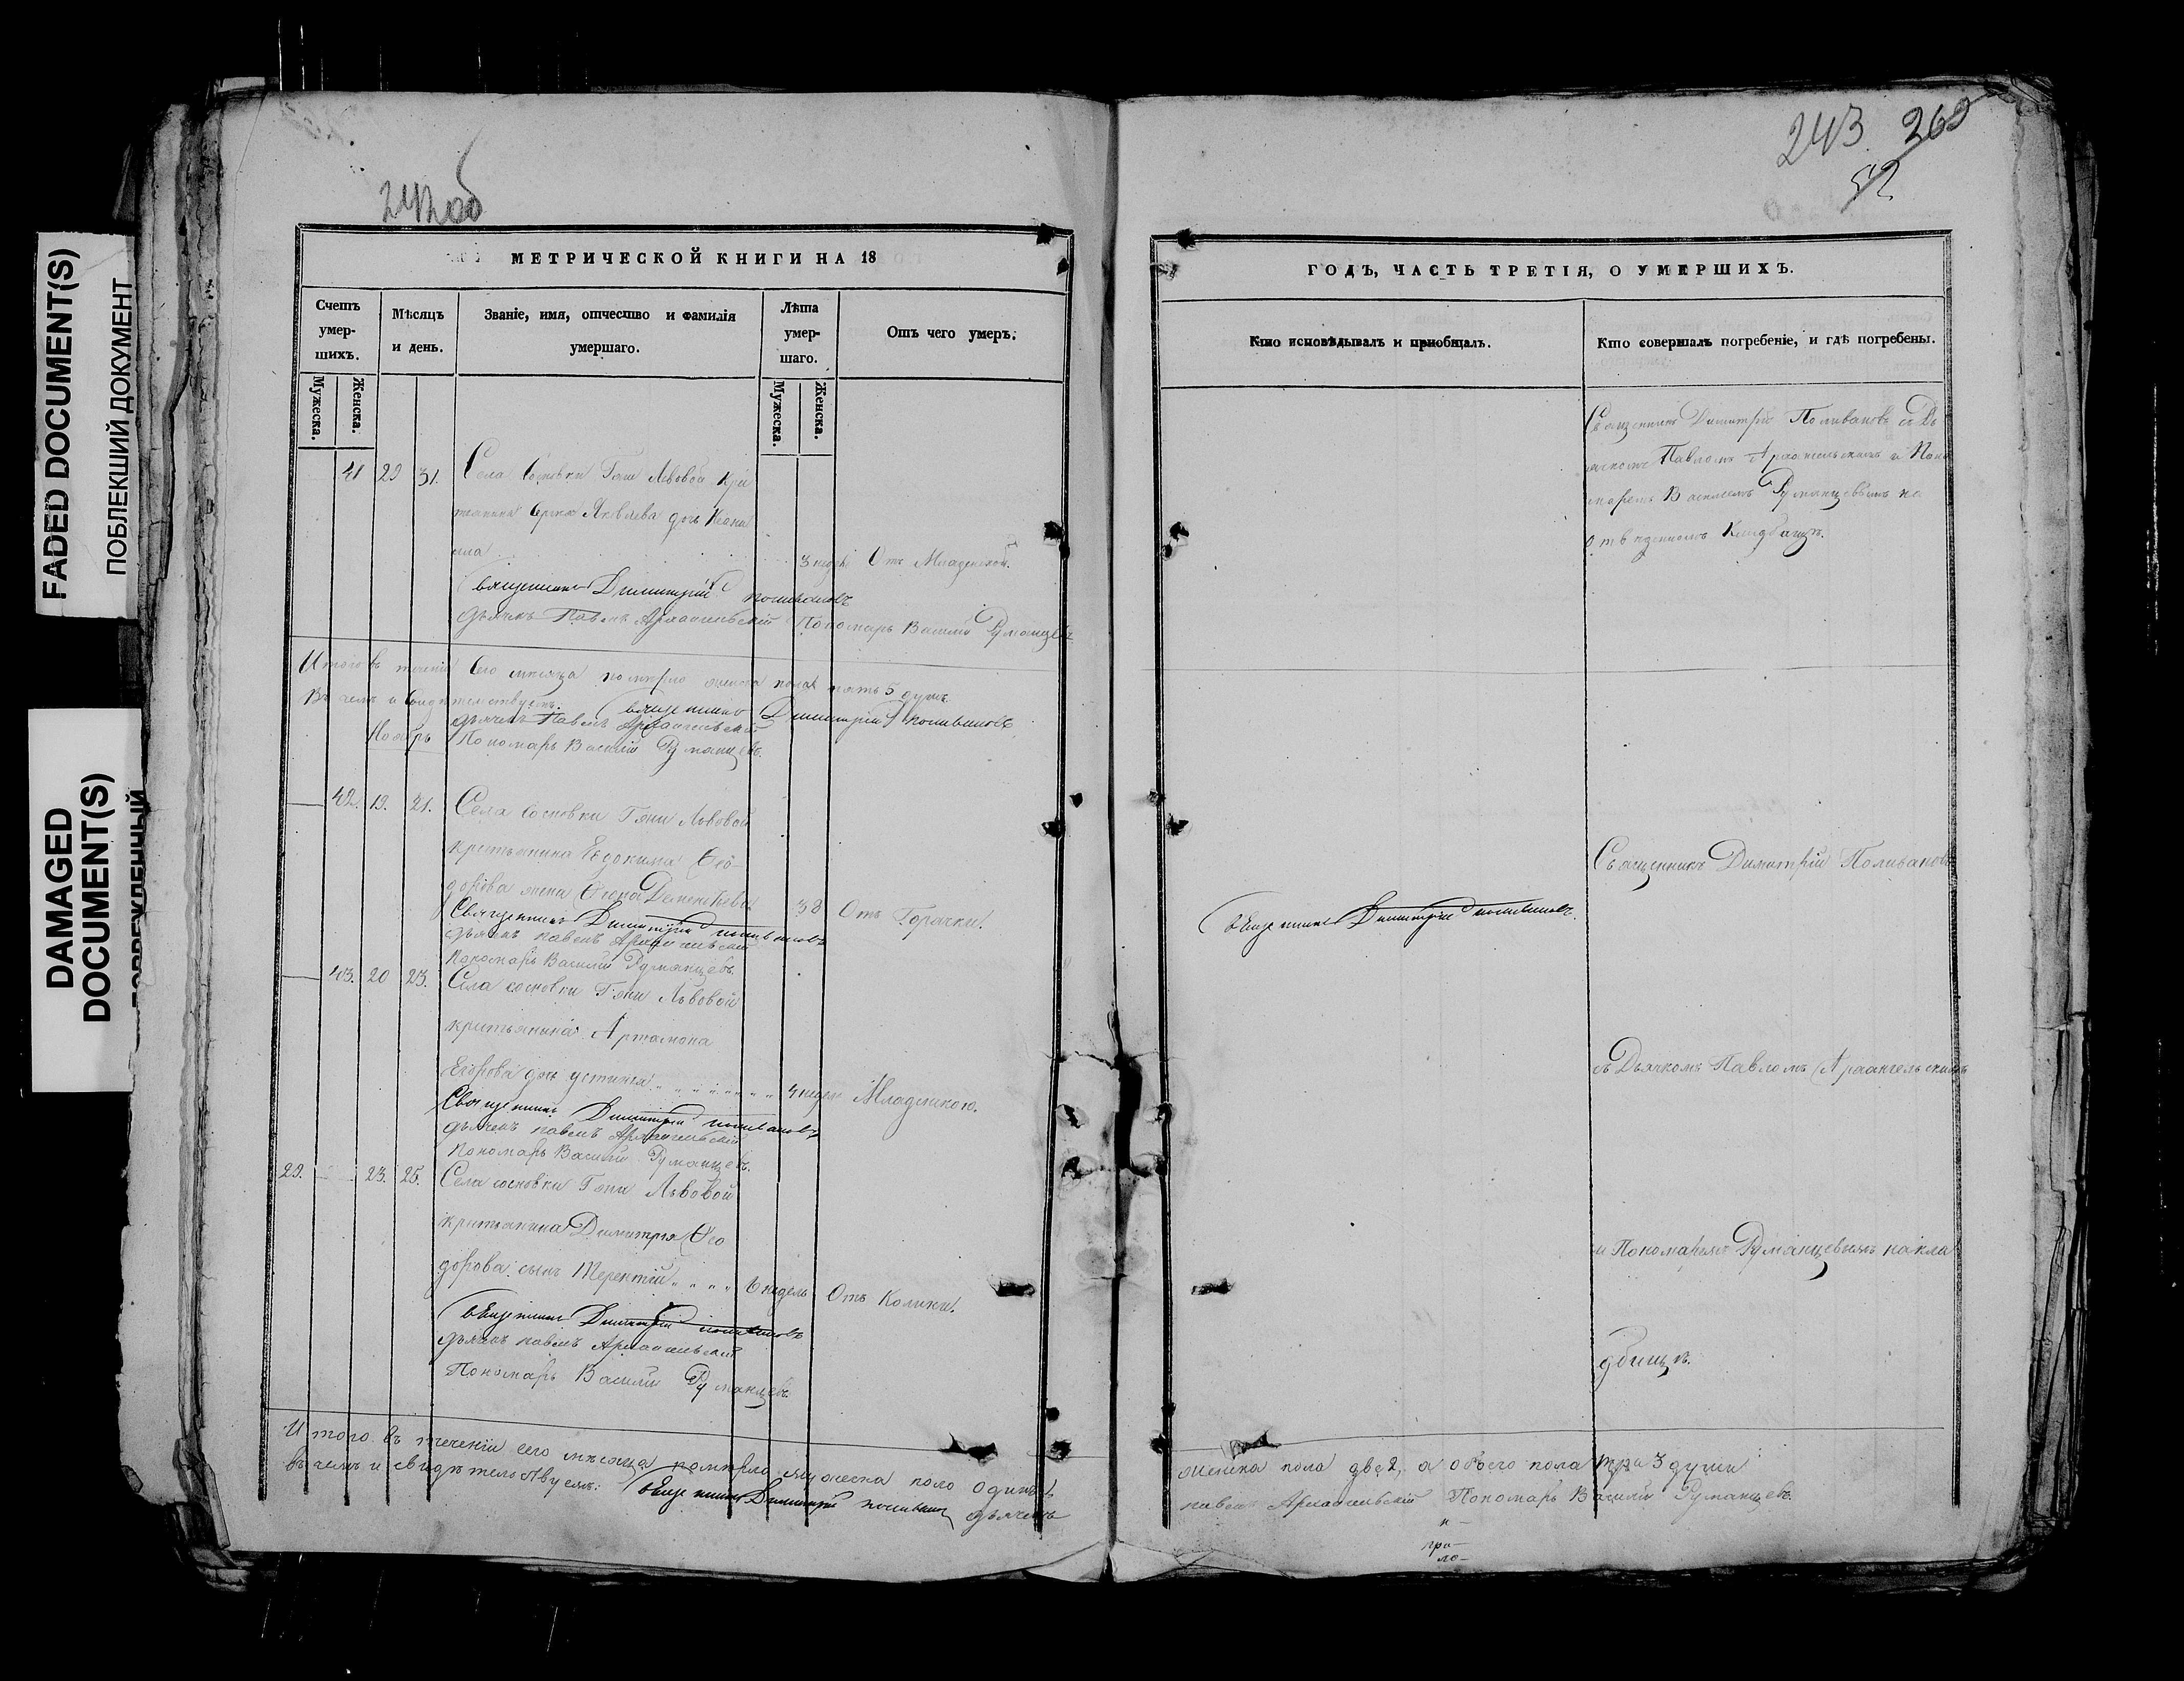 FADED DOCUMENT(S)
ПОБЛЕКШИЙ ДОКУМЕНТ
DAMAGED
DOCUMENT(S)
242об
МЕТРИЧЕСКОЙ КНИГИ НА 18
Счетъ умер-шихъ.
Мужеска.
Женска.
Мѣсяцъ и день.
Званіе, имя, отчество и фамилія умершаго.
Лѣта умер-шаго.
Мужеска.
Женска.
Отъ чего умеръ.
41 29 31. Села Сосновки Гжи Львовой кре
Яковлева дочь Ксени
3 неде Отъ Младенской.
Священникъ Димитрій Поливановъ
Дьячекъ Павелъ Архангельскій Пономарь Василій Румянцевъ
Итого въ теченіи Сего мѣсяца померло женска пола пять 5 душъ
Въ чемъ и Свидѣтельствуемъ. Священникъ Димитрій Поливановъ
дьячекъ Павелъ Архангельскій
Ноябрь Пономарь Василій Румянцевъ.
42. 19. 21. Села Сосновки Гжи Львовой
крестьянина Евдокима Ѳео-
дорова жена Дементьева 38 Отъ Горячки.
Священникъ Димитрій Поливановъ
дьячекъ павелъ Архангельскій
Пономарь Василій Румянцевъ.
43. 20 23. Села сосновки Гжи Львовой
крестьянина Артамона
Егорова дочь устинья 4 неде Младенскою.
Священникъ Димитрій Поливановъ
дьячекъ павелъ Архангельскій
Пономарь Василій Румянцевъ.
29. 23. 25. Села сосновки Гжи Львовой
крестьянина Димитрія Ѳео
дорова сынъ Терентій 6 недель Отъ Колики.
Священникъ Димитрій Поливановъ
дьячекъ павелъ Архангельскій
Пономарь Василій Румянцевъ.
Итого въ теченіи сего мѣсяца померло мужеска поло одинъ 1
въ чемъ и свидѣтельствуемъ: Священникъ Димитрій Поливановъ дьячекъ
243 260
52
ГОДЪ, ЧАСТЬ ТРЕТІЯ, О УМЕРШИХЪ.
Кто исповѣдывалъ и пріобщалъ.
Кто совершалъ погребеніе, и гдѣ погребены.
Священникъ Димитрій Поливановъ съ Дь
ячкомъ Павломъ Архангельскимъ и Поно
маремъ Василіемъ Румянцевымъ на
отведенномъ Кладбищѣ.
Священникъ Димитрій Поливановъ
Священникъ Димитрій Поливановъ.
съ Дьячкомъ Павломъ Архангельскимъ
и Пономаремъ Румянцевымъ накла
дбищѣ.
женска пола двѣ 2, а обоего пола три 3 души
павелъ Архангельскій Пономарь Василій Румянцевъ.